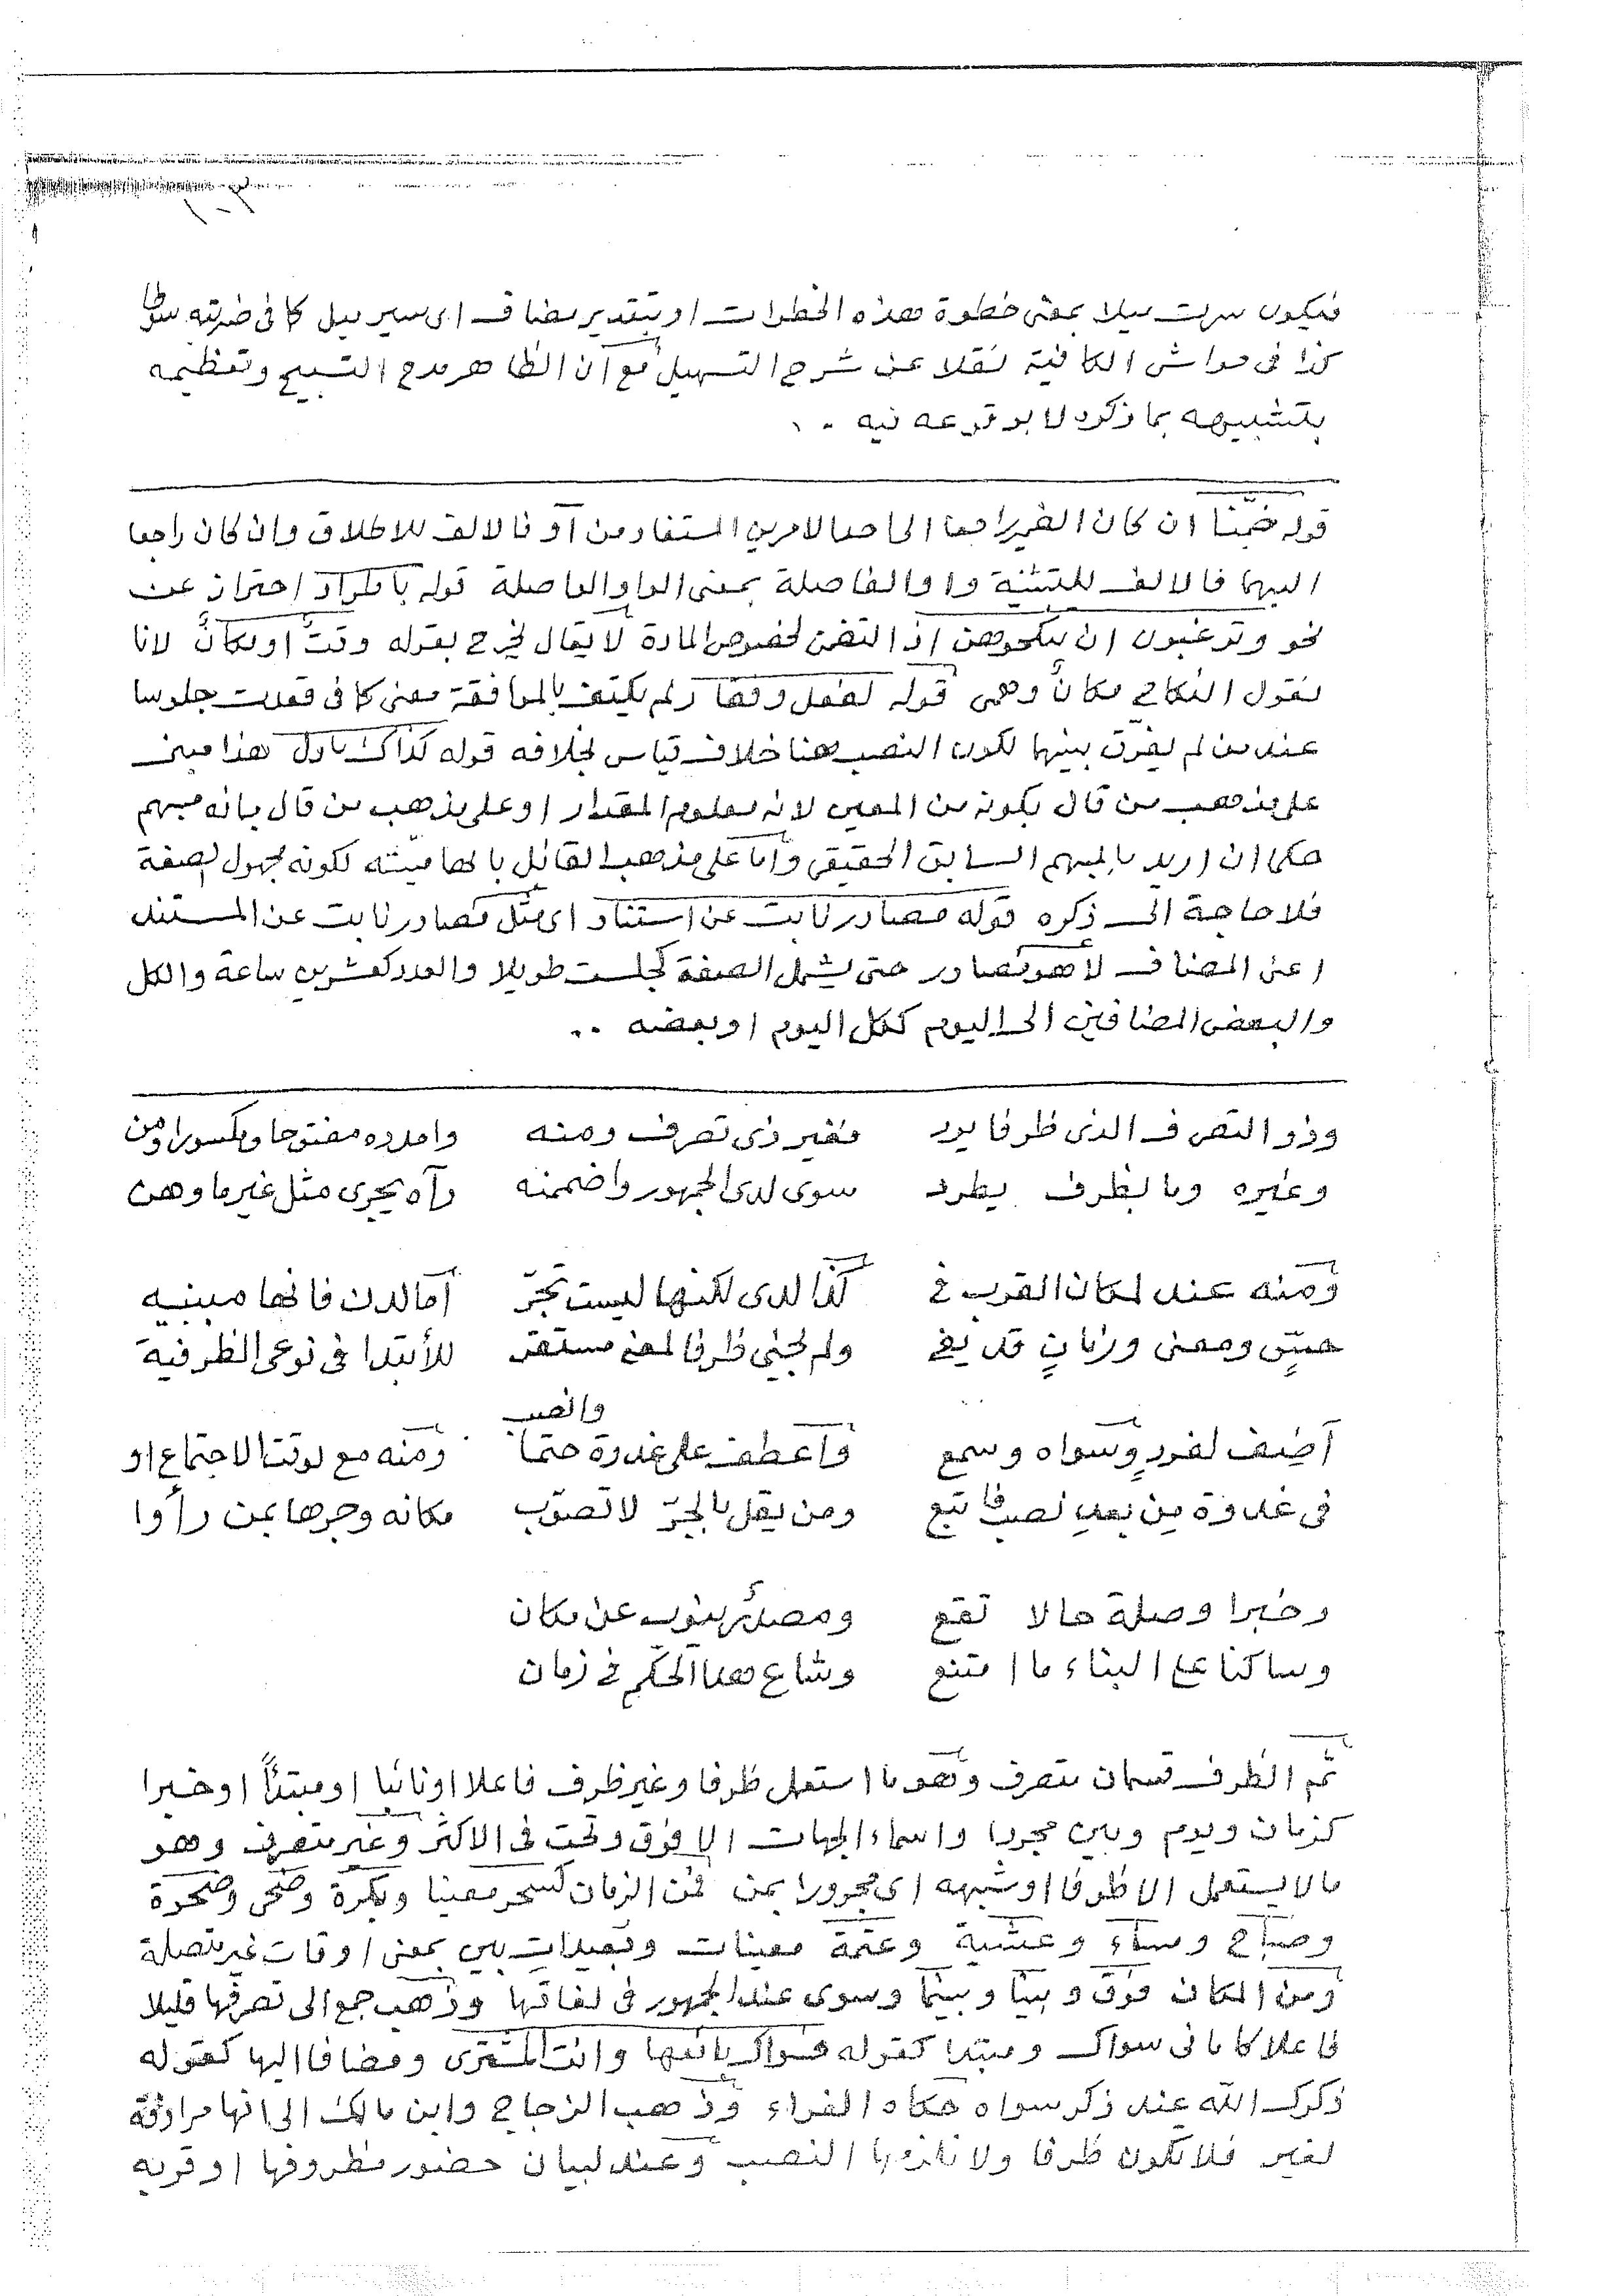 فيكون سرت ميلا بمعنى خطوة هذه الخطوات او بتقدير مضاف اى سير ميل كما فى ضربته سوطا
كذا فى حواشى الكافية نقلا عن شرح التسهيل مع ان الظاهر مدح التسبيح وتعظيمه
بتشبيهه بما ذكره لا بوقوعه فيه ..
قوله ضمّنا ان كان الضمير راجعا الى احد الامرين المستفاد من أو فالالف للاطلاق وان كان راجعا
اليهما فالالف للتثنية واو الفاصلة بمعنى الواو الواصلة قوله باطراد احتراز عن
نحو وترغبون ان تنكحوهن اذ التضمن لخصوص المادة لا يقال يخرج بقوله وقت او مكان لانا
نقول النكاح مكان وهمى قوله لفعل وفقا ولم يكتف بالموافقة معنى كما فى قعدت جلوسا
عند من لم يفرق بينهما لكون النصب هنا خلاف قياس بخلافه قوله كذاك باول هذا مبنى
على مذهب من قال بكونه من المعين لانه معلوم المقدار او على مذهب من قال بانه مبهم
حكما ان اريد بالمبهم السابق الحقيقى وأما على مذهب القائل بابهاميته لكونه مجهول الصفة
فلا حاجة الى ذكره قوله مصادر نابت عن استناد اى مثل مصادر نابت عن المستند
اعنى المضاف لا هو مصادر حتى يشمل الصفة كجلست طويلا والعدد كعشرين ساعة والكل
والبعض المضافين الى اليوم ككل اليوم او بعضه ..
وذو التصرف الذى ظرفا يرد فغير ذى تصرف ومنه وامدده مفتوحا ومكسورا ومن
وغيره وما بظرف يطرد سوى لدى الجمهور واضممنه رآه يجرى مثل غير ما وهن
ومنه عند لمكان القرب فى كذا لدى لكنها ليست تجرّ أما لدن فانها مبنيه
حسّ ومعنى وزمانٍ قد يفى ولم تجئ ظرفا لمعنى مستقر للأبتدا فى نوعى الظرفية
والنصب
أضِيف لمفردٍ وسواه وسمع واعطف على غدوة حتما ومنه مع لوقت الاجتماع او
فى غدوة مِن بعدِ نصب فاتبع ومن يقل بالجرّ لا تصوّب مكانه وجرها بمن رأوا
وخبرا وصلة حالا تقع ومصدرٌ ينوب عن مكان
وساكنا على البناء ما امتنع وشاع هذا الحكم فى زمان
ثم الظرف قسمان متصرف وهو ما استعمل ظرفا وغير ظرف فاعلا او نائبا او مبتدأً او خبرا
كزمان ويوم وبين مجردا واسماء الجهات الا فوق وتحت فى الاكثر وغير متصرف وهو
ما لا يستعمل الا ظرفا او شبهه اى مجرورا بمن فمن الزمان كسحر معينا وبكرة وضحى وضحوة
وصباح ومساء وعشية وعتمة معينات وبعيدات بين بمعنى اوقات غير متصلة
ومن المكان فوق وبينا وبينما وسوى عند الجمهور فى لغاتها وذهب جمع الى تصرفها قليلا
فاعلا كما ما فى سواك ومبتدا كقوله فسواك بائعها وانت المشترى ومضافا اليها كقوله
ذكرك الله عند ذكر سواه حكاه الفراء وذهب الزجاج وابن مالك الى انها مرادفة
لغير فلا تكون ظرفا ولا تلزمها النصب وعند لبيان حضور مظروفها او قربه